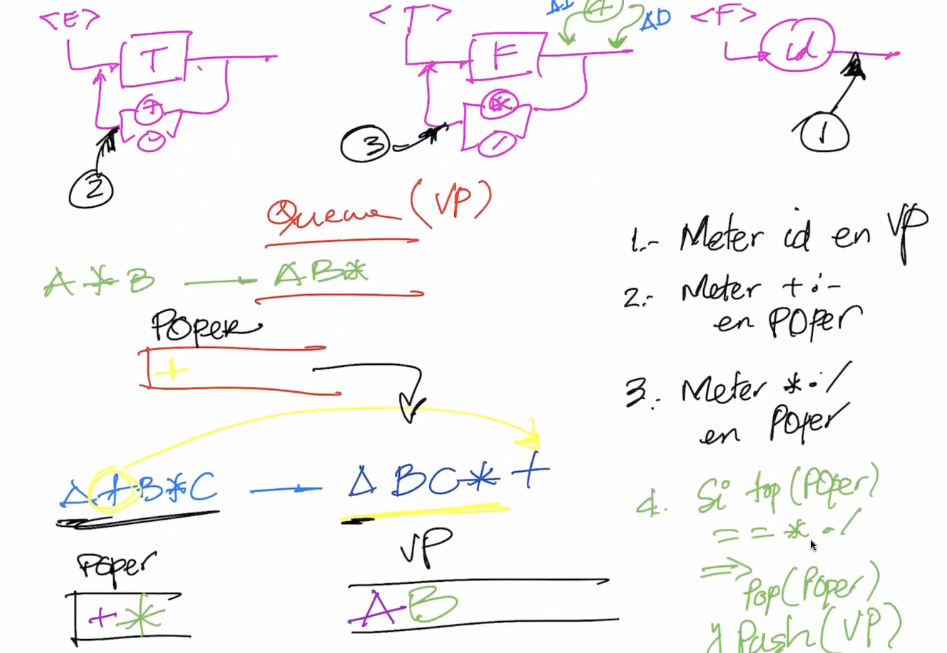 <E>
<T>
<F>
ΔI
4
ΔD
T
F
id
+
-
*
/
2
3
1
Queue (VP)
A * B → AB*
POper
+
A + B * C → A B C * +
POper
+ *
VP
A B
1.- Meter id en VP
2.- Meter + ó -
en POper
3. Meter * ó /
en POper
4. Si top (POper)
== * ó /
⇒ Pop(POper)
y Push(VP)